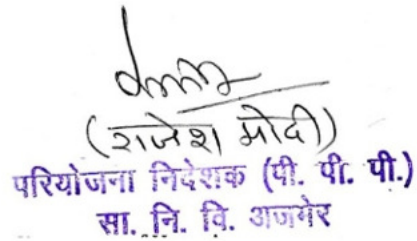 (राजेश मोदी)
परियोजना निदेशक (पी. पी. पी.)
सा. नि. वि. अजमेर